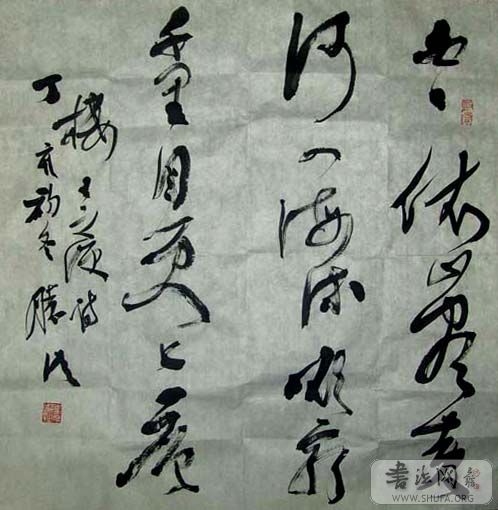 白日依山盡黃
河入海流欲窮
千里目更上一層
樓 王之渙詩
丁亥初冬
書法网
WWW.SHUFA.ORG